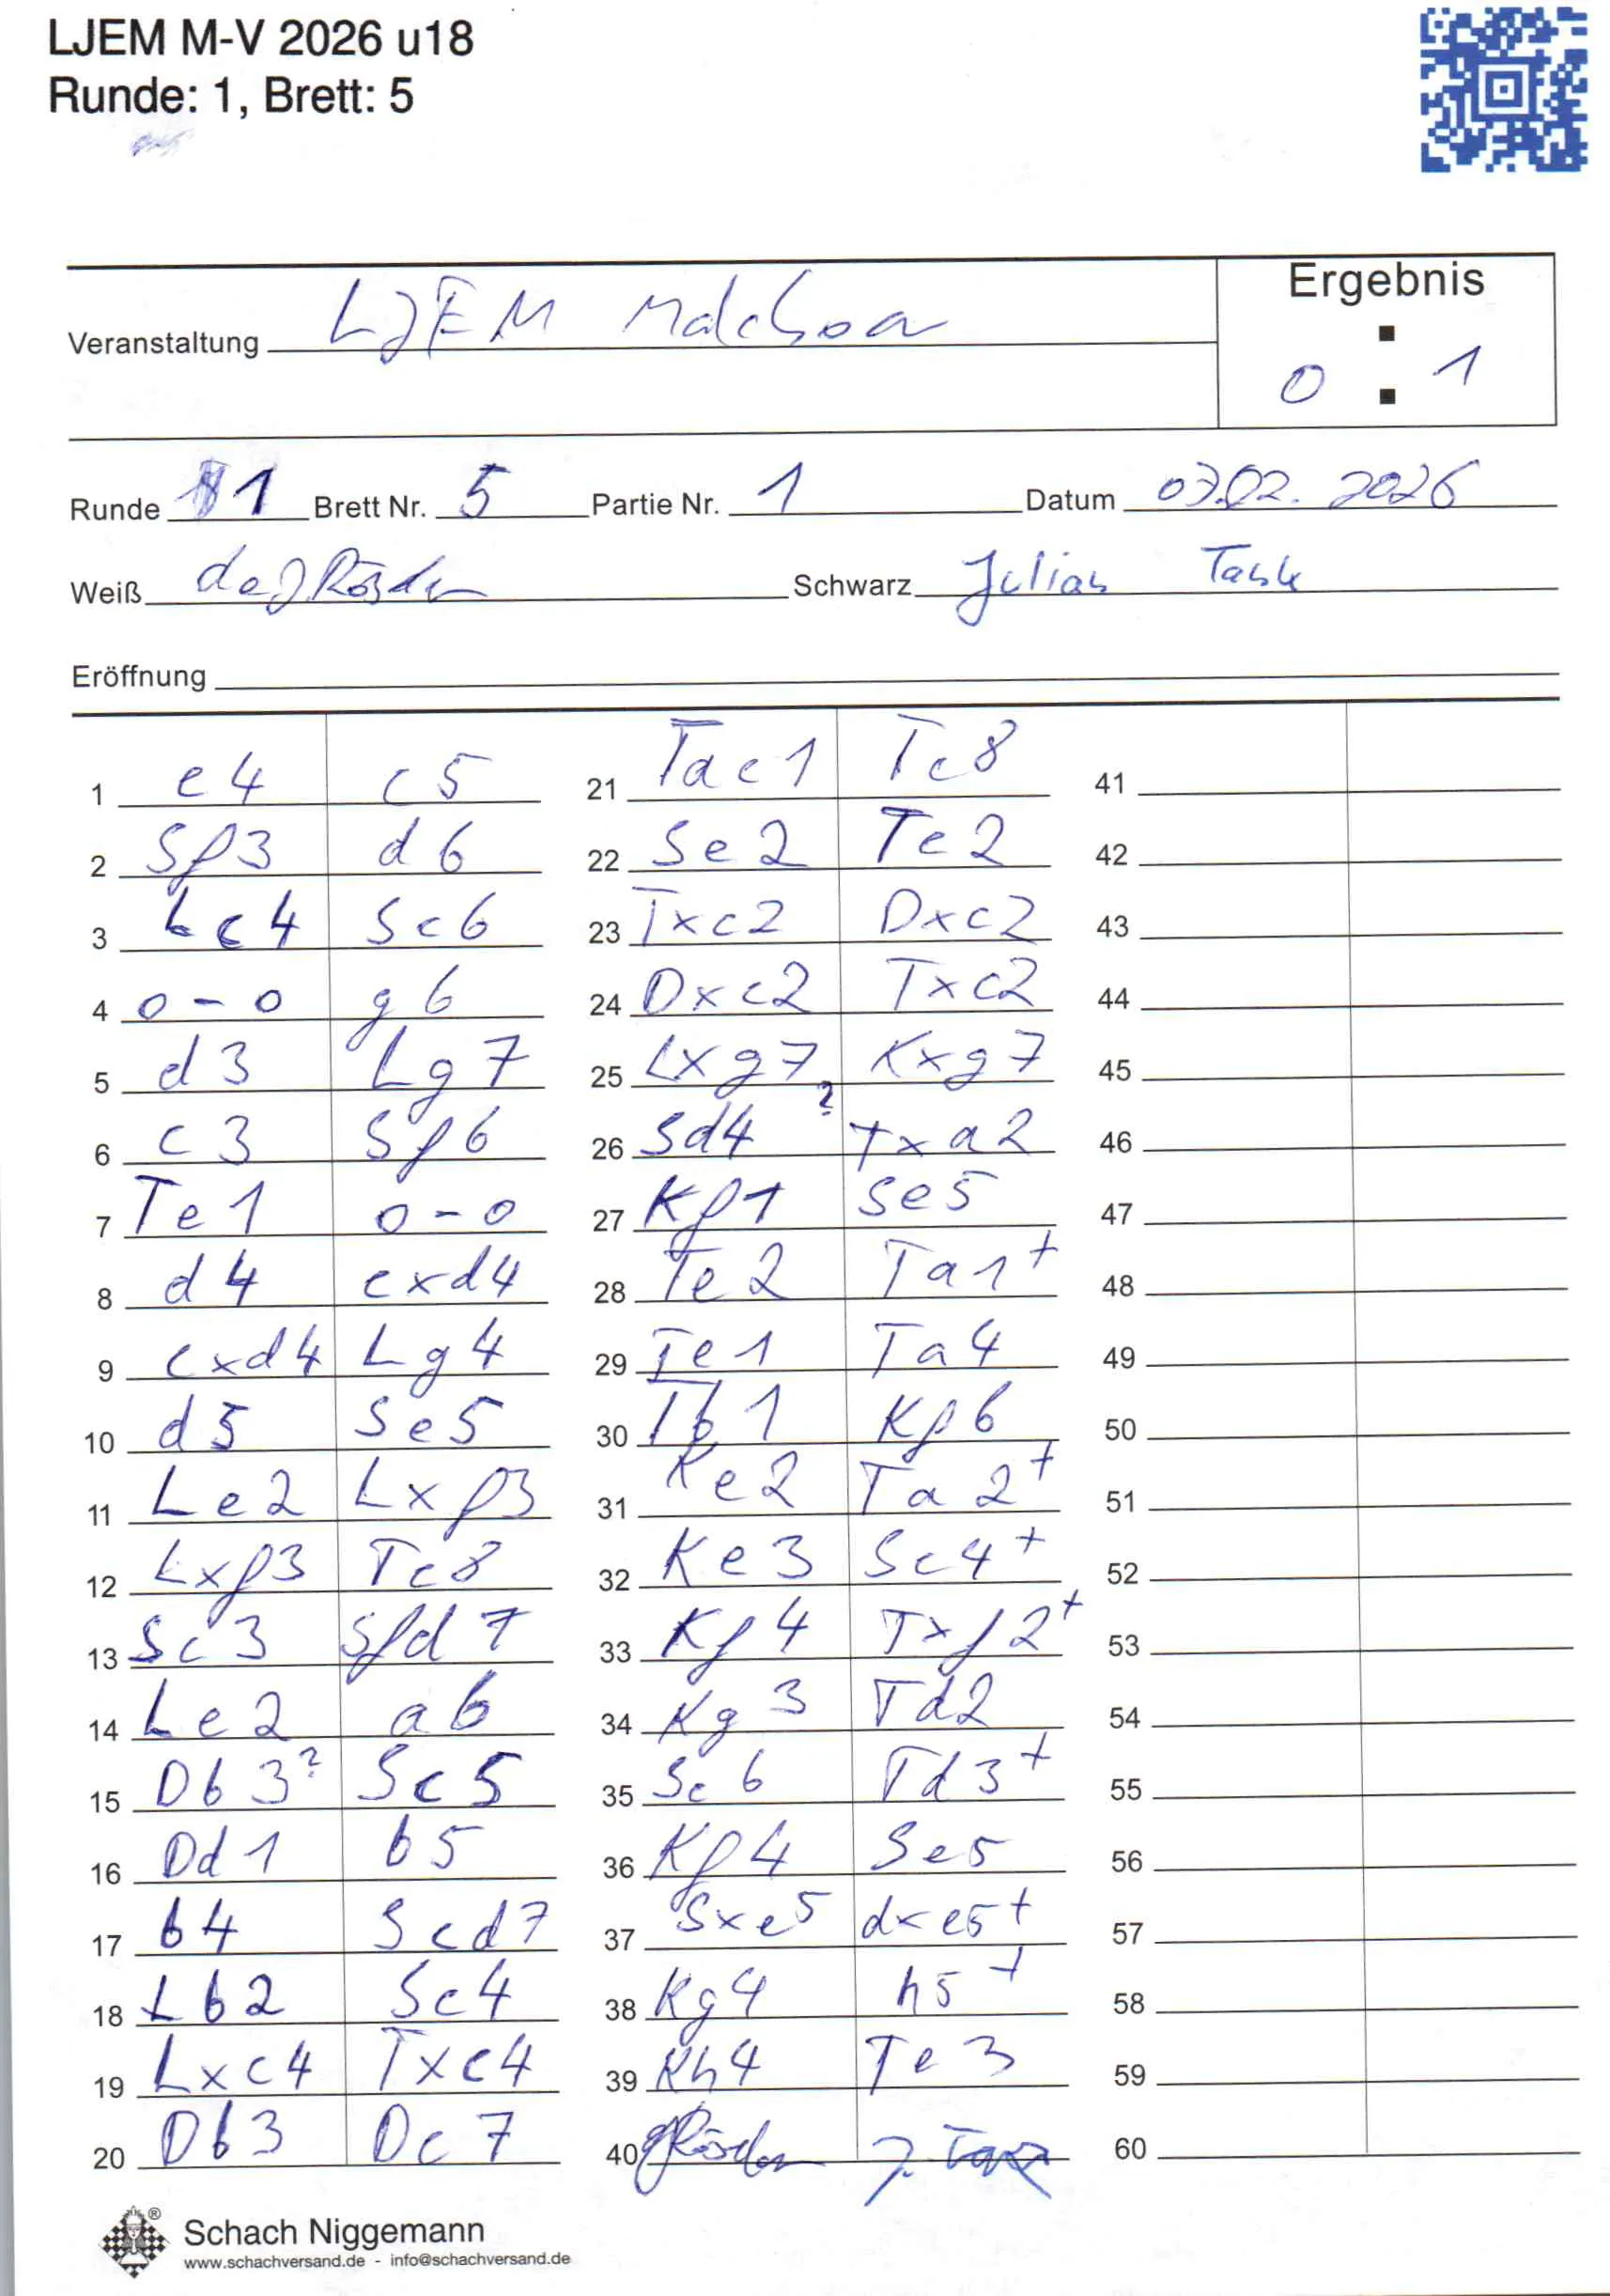 LJEM M-V 2026 u18
Runde: 1, Brett: 5
Veranstaltung LJEM Malchow
Ergebnis
0 : 1
Runde 1 Brett Nr. 5 Partie Nr. 1 Datum 07.02.2026
Weiß Schwarz Julian Task
Eröffnung
1 e4 c5
2 Sf3 d6
3 Lc4 Sc6
4 0-0 g6
5 d3 Lg7
6 c3 Sf6
7 Te1 0-0
8 d4 cxd4
9 cxd4 Lg4
10 d5 Se5
11 Le2 Lxf3
12 Lxf3 Tc8
13 Sc3 Sfd7
14 Le2 a6
15 Db3? Sc5
16 Dd1 b5
17 b4 Scd7
18 Lb2 Sc4
19 Lxc4 Txc4
20 Db3 Dc7
21 Tac1 Tc8
22 Se2 Tc2
23 Txc2 Dxc2
24 Dxc2 Txc2
25 Lxg7 Kxg7
26 Sd4? Txa2
27 Kf1 Se5
28 Te2 Ta1+
29 Te1 Ta4
30 Tb1 Kf6
31 Ke2 Ta2+
32 Ke3 Sc4+
33 Kf4 Txf2+
34 Kg3 Td2
35 Sc6 Td3+
36 Kf4 Se5
37 Sxe5 dxe5+
38 Kg4 h5+
39 Kh4 Te3
40 J. Task
41
42
43
44
45
46
47
48
49
50
51
52
53
54
55
56
57
58
59
60
Schach Niggemann
www.schachversand.de - info@schachversand.de